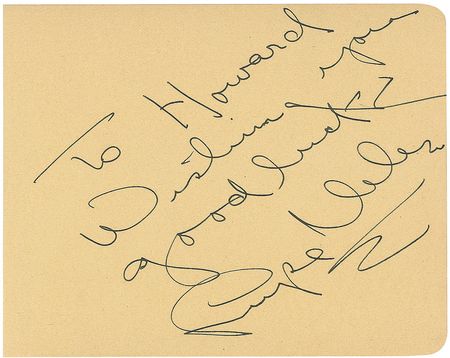 To Howard
Wishing you
good luck
Lupe Velez